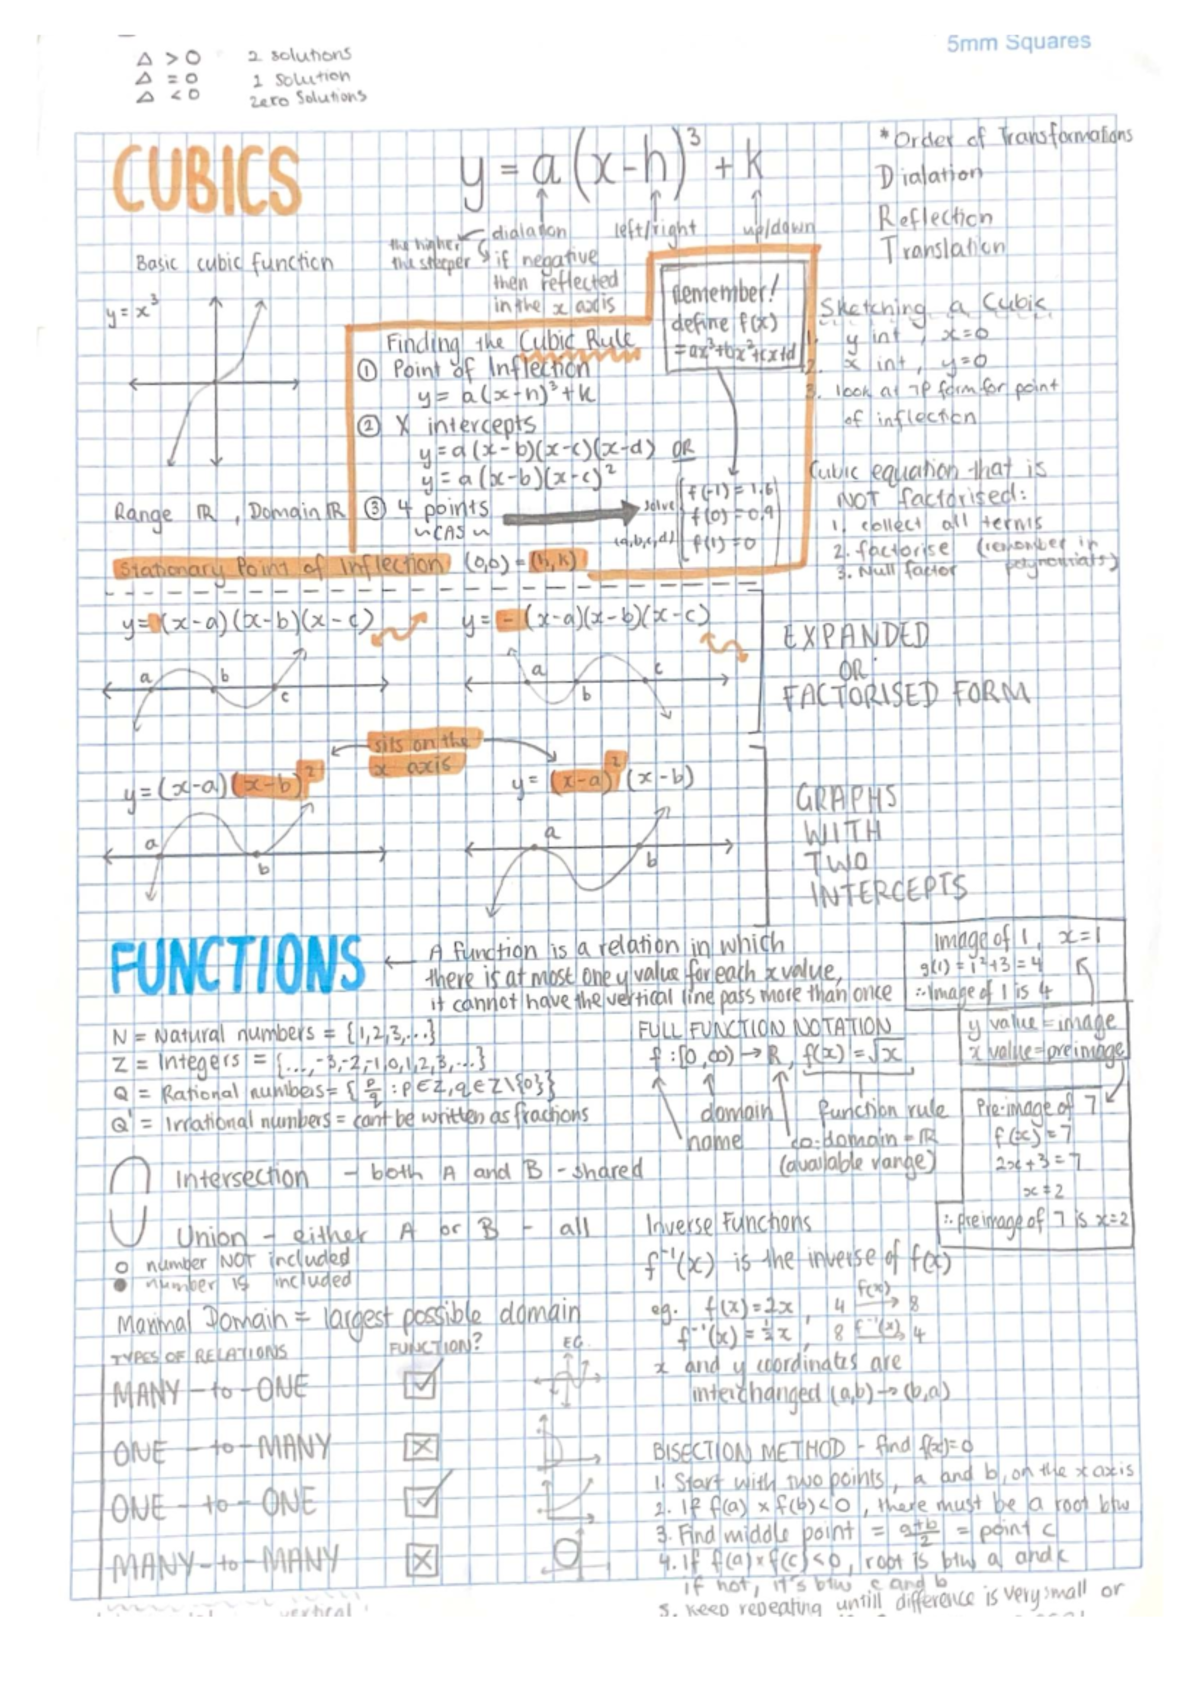 5mm Squares
Δ > 0 2 solutions
Δ = 0 1 solution
Δ < 0 Zero Solutions
CUBICS
y = a(x-h)³ + k
dialation
left/right
up/down
the higher
the steeper
if negative
then reflected
in the x axis
* Order of Transformations
Dialation
Reflection
Translation
Basic cubic function
y = x³
Range ℝ, Domain ℝ
Stationary Point of Inflection (0,0) = (h,k)
Finding the Cubic Rule
① Point of Inflection
y = a(x-h)³+k
② X intercepts
y = a(x-b)(x-c)(x-d) OR
y = a(x-b)(x-c)²
③ 4 points
~CAS~
remember!
define f(x)
= ax³+bx²+cx+d
solve
f(-1) = 1.6
f(0) = 0.9
f(1) = 0
(a,b,c,d)
Sketching a Cubic
1. y int, x=0
2. x int, y=0
3. look at TP form for point
of inflection
Cubic equation that is
NOT factorised:
1. collect all terms
2. factorise (remember in
polynomials)
3. Null factor
y = (x-a)(x-b)(x-c)
a b c
y = - (x-a)(x-b)(x-c)
a b c
EXPANDED
OR
FACTORISED FORM
sits on the
x axis
y = (x-a)(x-b)²
a b
y = (x-a)²(x-b)
a b
GRAPHS
WITH
TWO
INTERCEPTS
FUNCTIONS
A function is a relation in which
there is at most one y value for each x value,
it cannot have the vertical line pass more than once
Image of 1, x=1
g(1) = 1²+3 = 4
∴ Image of 1 is 4
y value = image
x value = preimage
Pre-image of 7
f(x) = 7
2x+3 = 7
x = 2
∴ preimage of 7 is x=2
N = Natural numbers = {1,2,3,...}
Z = Integers = {...,-3,-2,-1,0,1,2,3,...}
Q = Rational numbers = {p/q : p∈Z, q∈Z\{0}}
Q' = Irrational numbers = cant be written as fractions
FULL FUNCTION NOTATION
f : [0,∞) → R, f(x) = √x
name
domain
co-domain = ℝ
(available range)
function rule
∩ Intersection - both A and B - shared
∪ Union - either A or B - all
○ number NOT included
● number IS included
Maximal Domain = largest possible domain
TYPES OF RELATIONS FUNCTION? EG.
MANY-to-ONE
ONE-to-MANY
ONE-to-ONE
MANY-to-MANY
vertical
Inverse Functions
f⁻¹(x) is the inverse of f(x)
eg. f(x) = 2x, 4 f(x)→ 8
f⁻¹(x) = ½x, 8 f⁻¹(x)→ 4
x and y coordinates are
interchanged (a,b)→(b,a)
BISECTION METHOD - find f(x)=0
1. Start with two points, a and b, on the x axis
2. If f(a) x f(b) < 0, there must be a root btw
3. Find middle point = a+b/2 = point c
4. if f(a) x f(c) < 0, root is btw a and c
if not, it's btw c and b
5. Keep repeating untill difference is very small or